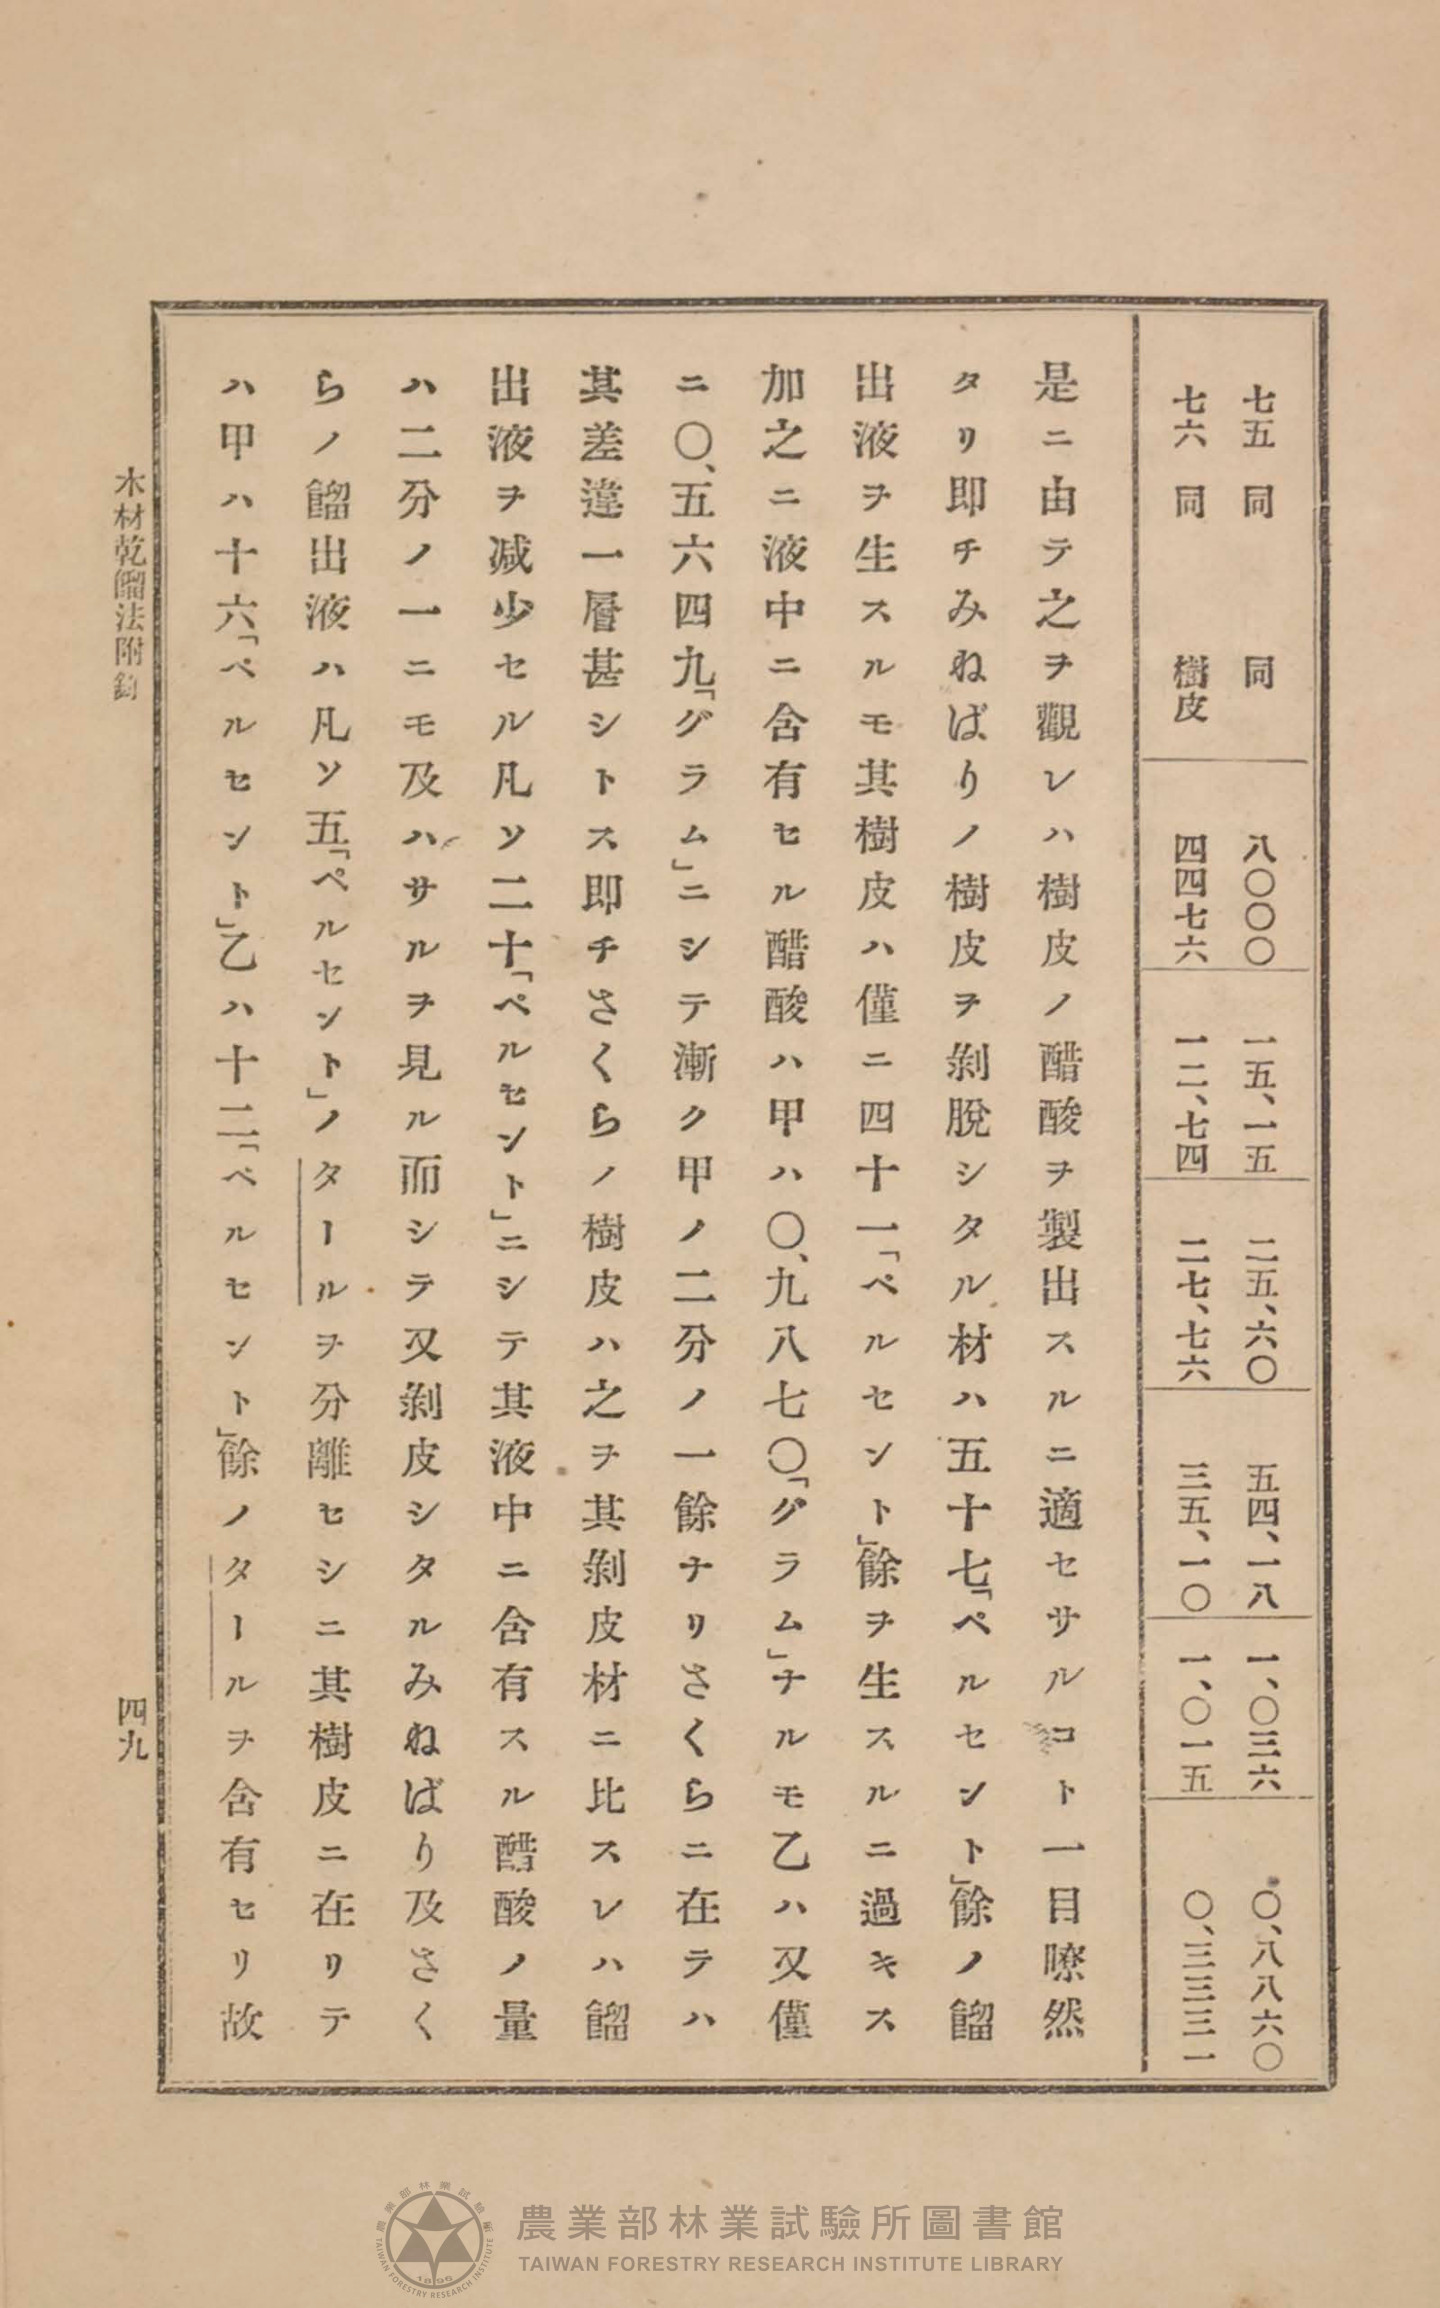 七五 同 同 八〇〇〇 一五、一五 二五、六〇 五四、一八 一、〇三六 〇、八八六〇
七六 同 樹皮 四四七六 一二、七四 二七、七六 三五、一〇 一、〇一五 〇、三三三一
是ニ由テ之ヲ觀レハ樹皮ノ醋酸ヲ製出スルニ適セサルコト一目瞭然
タリ即チみねばりノ樹皮ヲ剝脫シタル材ハ五十七「ペルセント」餘ノ餾
出液ヲ生スルモ其樹皮ハ僅ニ四十一「ペルセント」餘ヲ生スルニ過キス
加之ニ液中ニ含有セル醋酸ハ甲ハ〇、九八七〇「グラム」ナルモ乙ハ又僅
ニ〇、五六四九「グラム」ニシテ漸ク甲ノ二分ノ一餘ナリさくらニ在テハ
其差違一層甚シトス即チさくらノ樹皮ハ之ヲ其剝皮材ニ比スレハ餾
出液ヲ减少セル凡ソ二十「ペルセント」ニシテ其液中ニ含有スル醋酸ノ量
ハ二分ノ一ニモ及ハサルヲ見ル而シテ又剝皮シタルみねばり及さく
らノ餾出液ハ凡ソ五「ペルセント」ノタールヲ分離セシニ其樹皮ニ在リテ
ハ甲ハ十六「ペルセント」乙ハ十二「ペルセント」餘ノタールヲ含有セリ故
木材乾餾法附錄 四九
農業部林業試驗所圖書館
TAIWAN FORESTRY RESEARCH INSTITUTE LIBRARY
農業部林業試驗所
TAIWAN FORESTRY RESEARCH INSTITUTE
1896